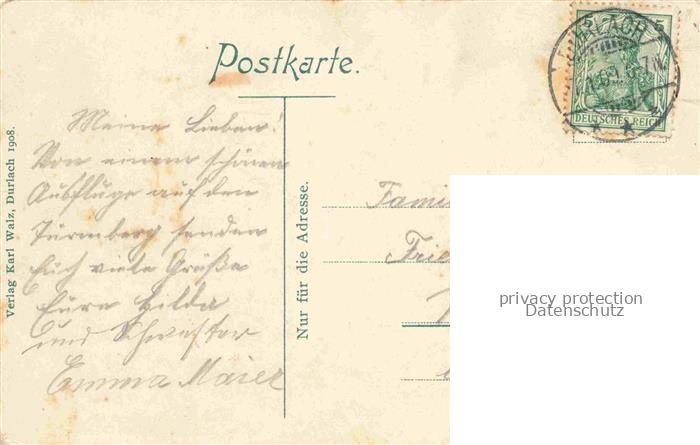 Postkarte.
Meine Lieben!
Von einem schönen
Ausfluge auf den
Turmberg senden
Euch viele Grüße
Eure Hilda
und Schwester
Emma Maier
Verlag Karl Walz, Durlach 1908.
Nur für die Adresse.
DURLACH
5 5
DEUTSCHES REICH
Famil
Frie
privacy protection
Datenschutz